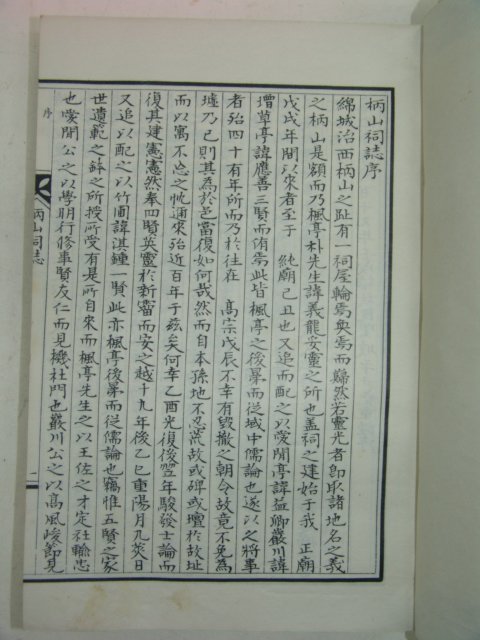 柄山祠誌序
綿城治西柄山之趾有一祠屋輪焉奐焉而歸然若靈光者卽取諸地名之義
之柄山是額而乃楓亭朴先生諱義龍妥靈之所也盖祠之建始于我 正廟
戊戌年間以來者至于 純廟己丑也又追而配之以愛閒亭諱益卿巖川諱
璔草亭諱應善三賢而侑焉此皆楓亭之後昴而從域中儒論也遂以之將事
者殆四十有年所而乃於往在 高宗戊辰不幸有毁撤之朝令故竟不免爲
墟乃已則其爲於邑當復如何哉然而自本孫地不忍荒故或碑或壇於故址
而以寓不忘之忱迺來殆近百年于玆矣何幸乙酉光復後翌年駿發士論而
復其建憲憲然奉四賢英靈於新甯而安之越十九年後乙巳重陽月九煢日
又追以配之以竹圃諱淇鍾一賢此亦楓亭後昴而從儒論也竊惟五賢之家
世遺範之鉢之所授所受有是所自來而楓亭先生之以王佐之才定社輸忠
也愛閒公之以學明行修事賢友仁而見機杜門也巖川公之以高風峻節見
序
柄山祠誌
一